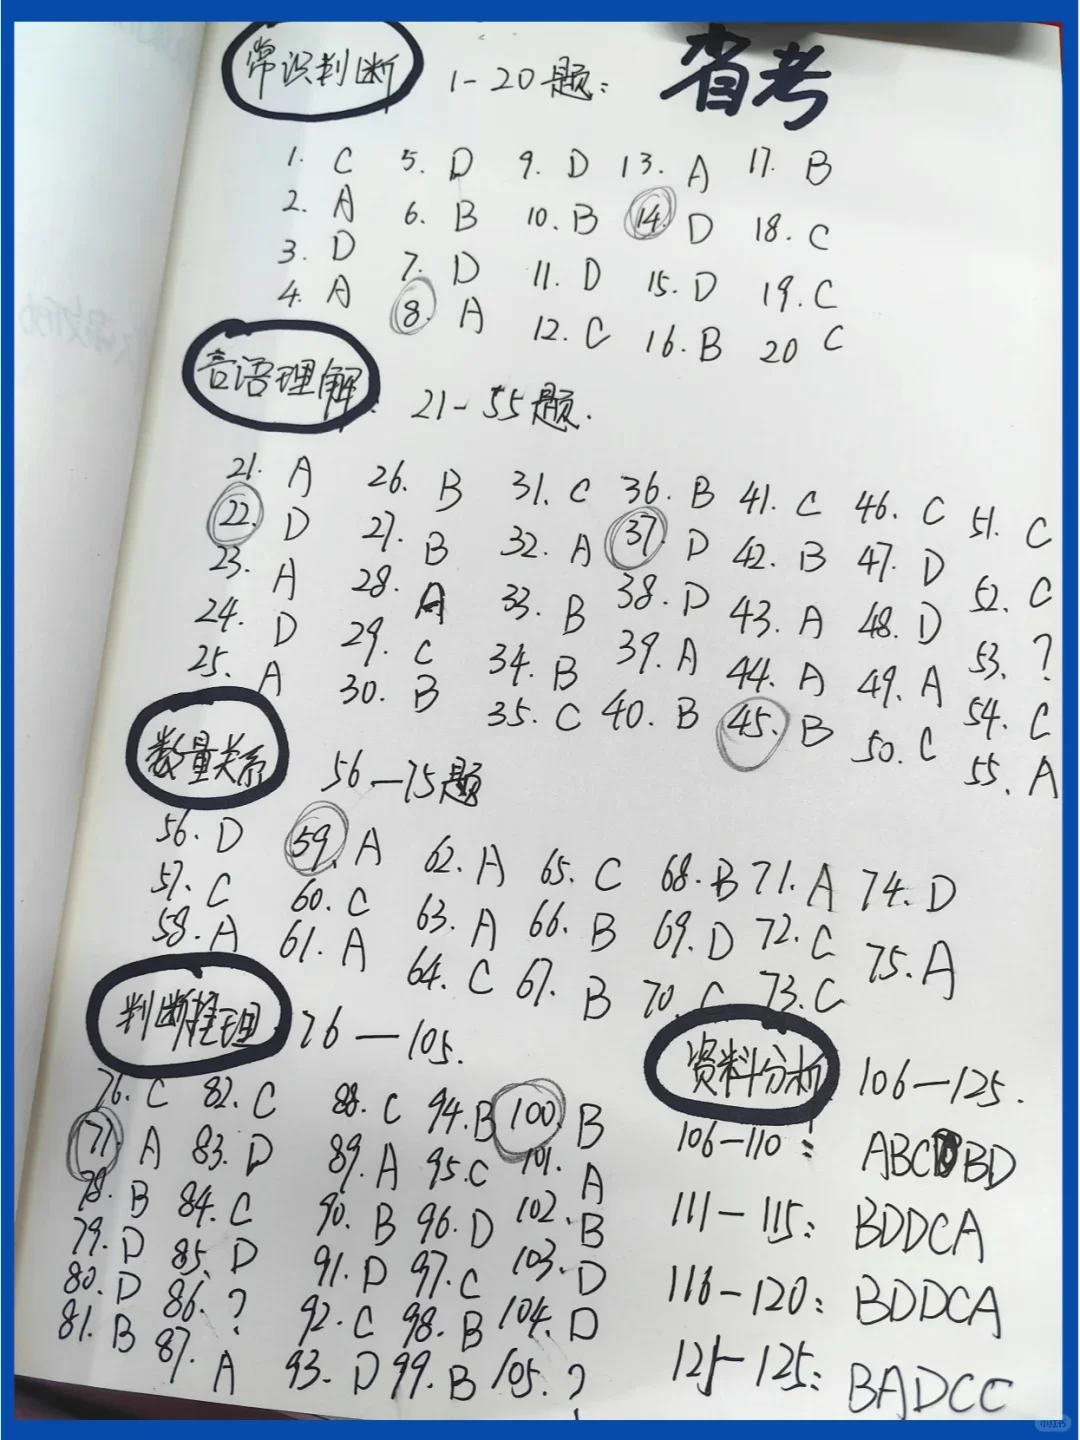 常识判断 1-20题: 省考
1. C 5. D 9. D 13. A 17. B
2. A 6. B 10. B 14. D 18. C
3. D 7. D 11. D 15. D 19. C
4. A 8. A 12. C 16. B 20 C
言语理解: 21-55题.
21. A 26. B 31. C 36. B 41. C 46. C 51. C
22. D 27. B 32. A 37. D 42. B 47. D 52. C
23. A 28. A 33. B 38. D 43. A 48. D 53. ?
24. D 29. C 34. B 39. A 44. A 49. A 54. C
25. A 30. B 35. C 40. B 45. B 50. C 55. A
数量关系 56—75题
56. D 59. A 62. A 65. C 68. B 71. A 74. D
57. C 60. C 63. A 66. B 69. D 72. C 75. A
58. A 61. A 64. C 67. B 70. C 73. C
判断推理 76—105.
76. C 82. C 88. C 94. B 100. B
77. A 83. D 89. A 95. C 101. A
78. B 84. C 90. B 96. D 102. B
79. D 85. D 91. D 97. C 103. D
80. D 86. ? 92. C 98. B 104. D
81. B 87. A 93. D 99. B 105. ?
资料分析 106—125.
106—110: ABCBD
111—115: BDDCA
116—120: BDDCA
125—125: BADCC
小红书